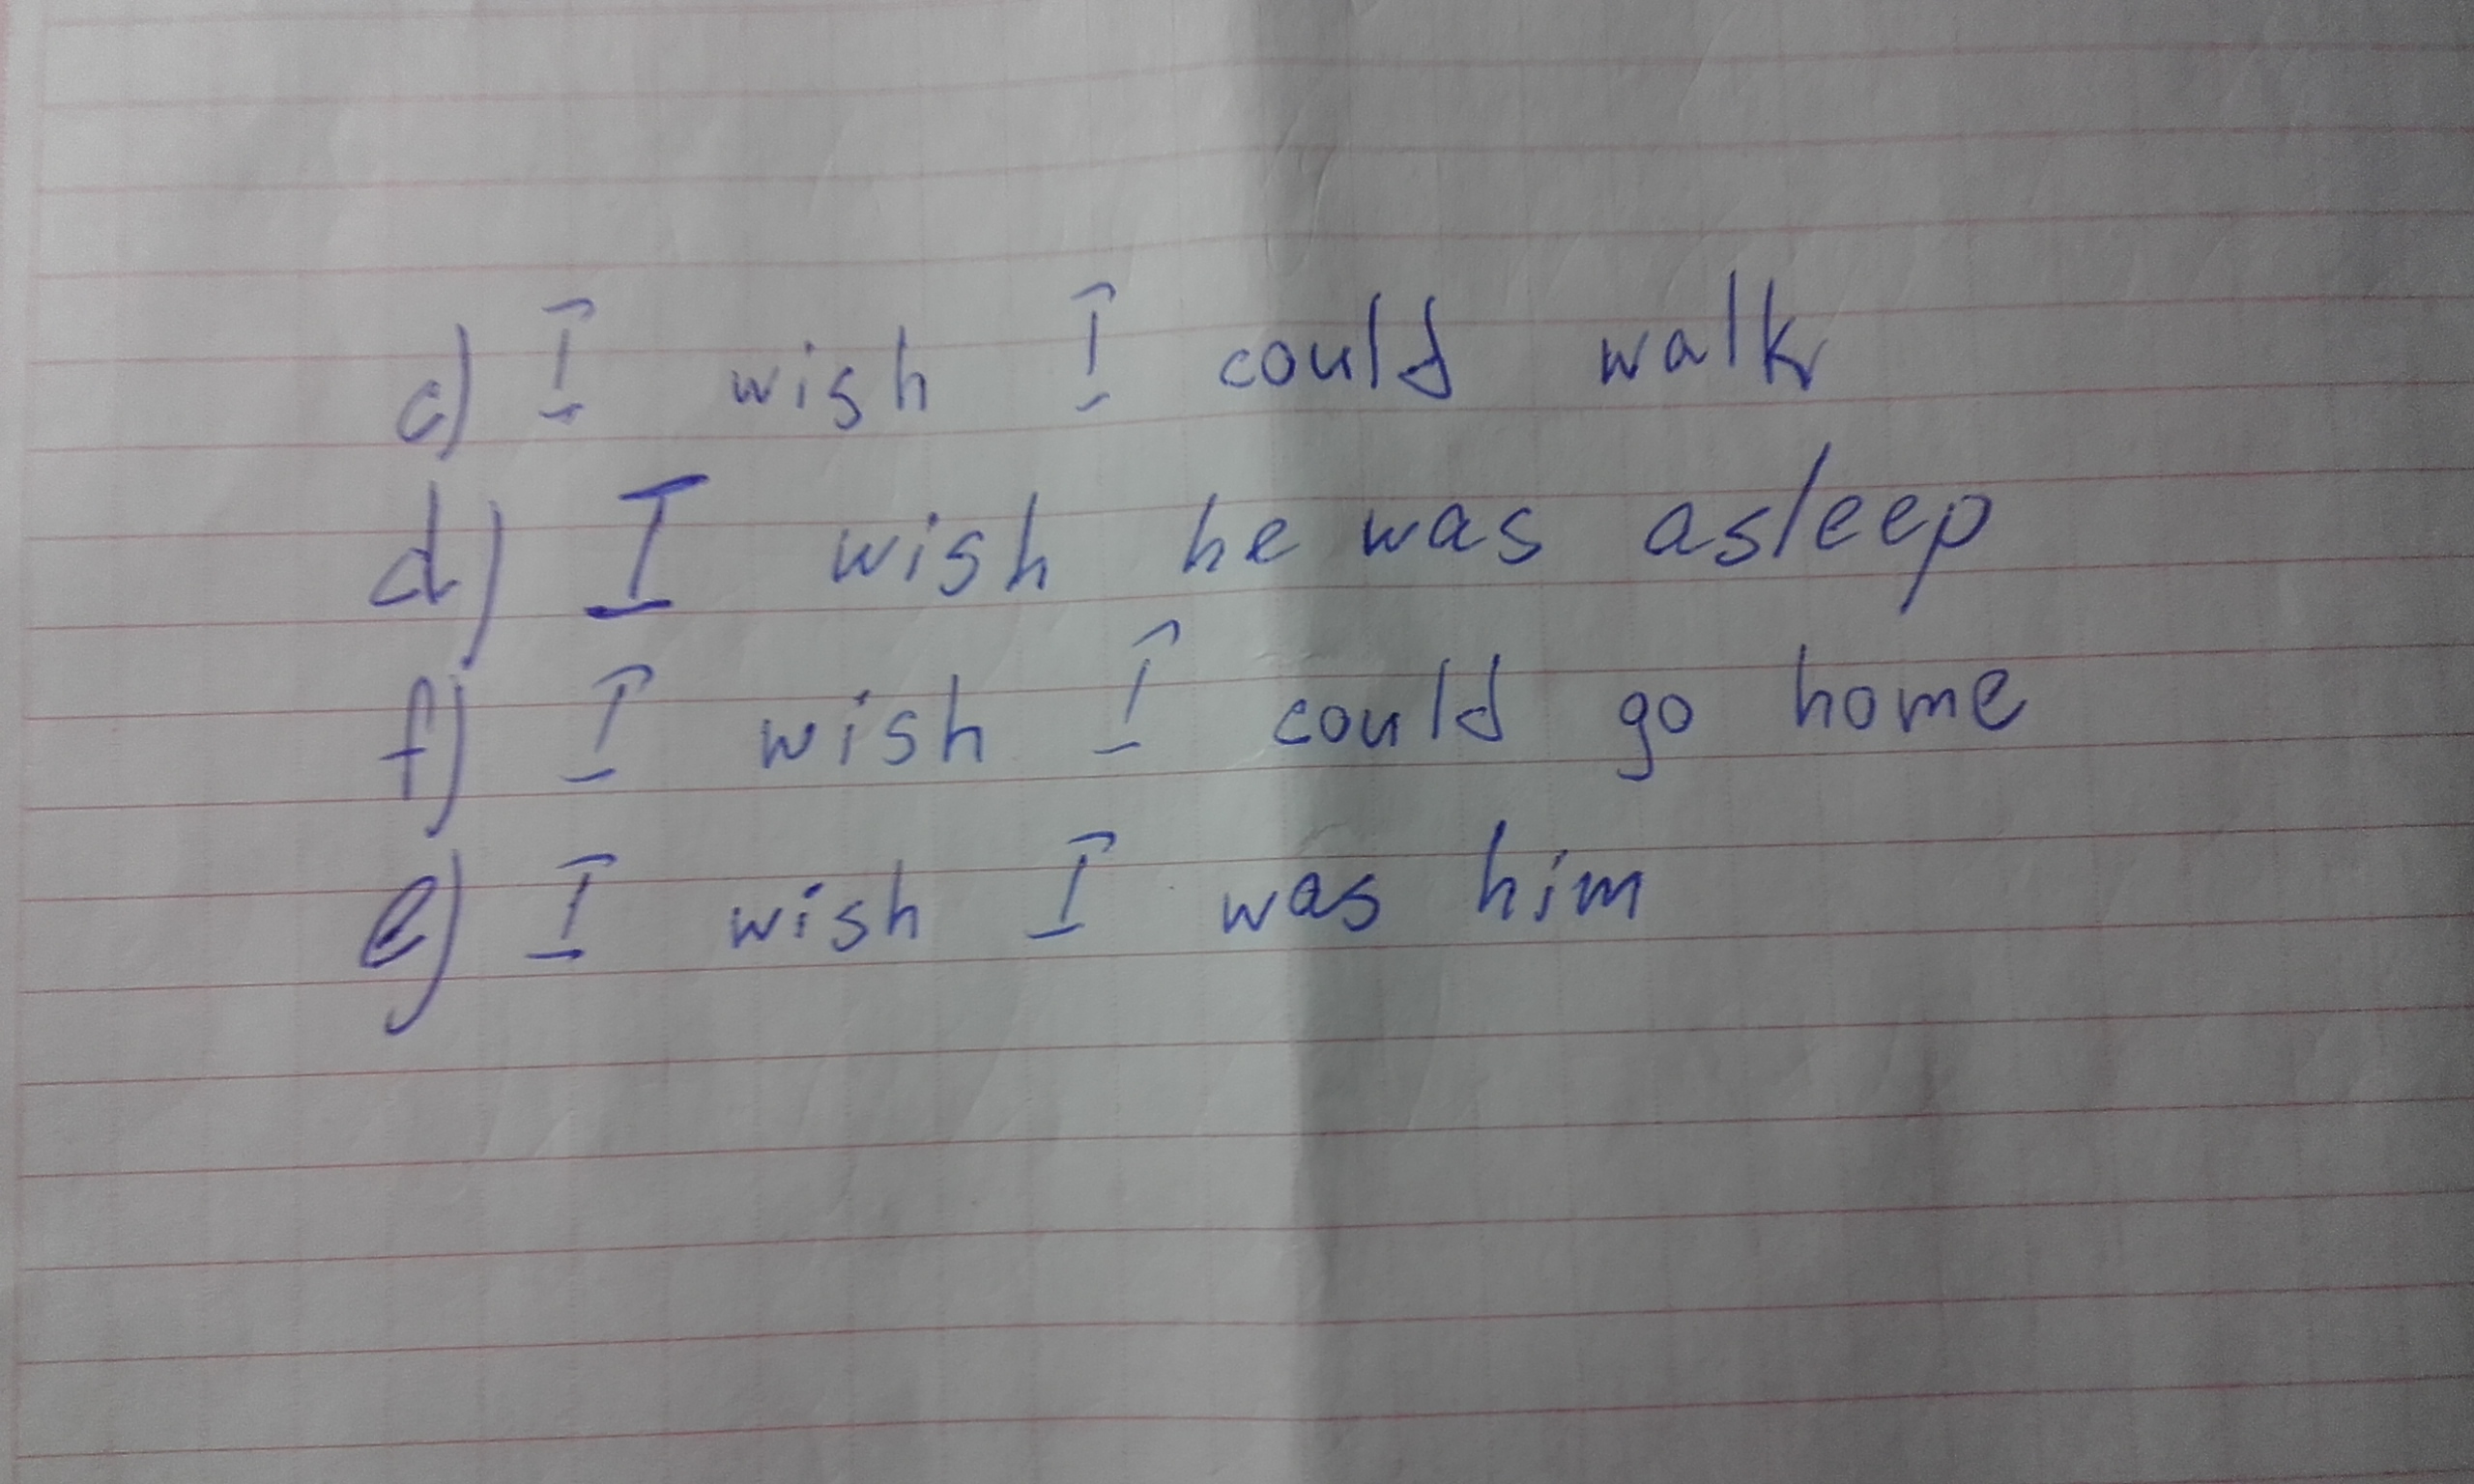 c) I wish I could walk
d) I wish he was asleep
f) I wish I could go home
e) I wish I was him